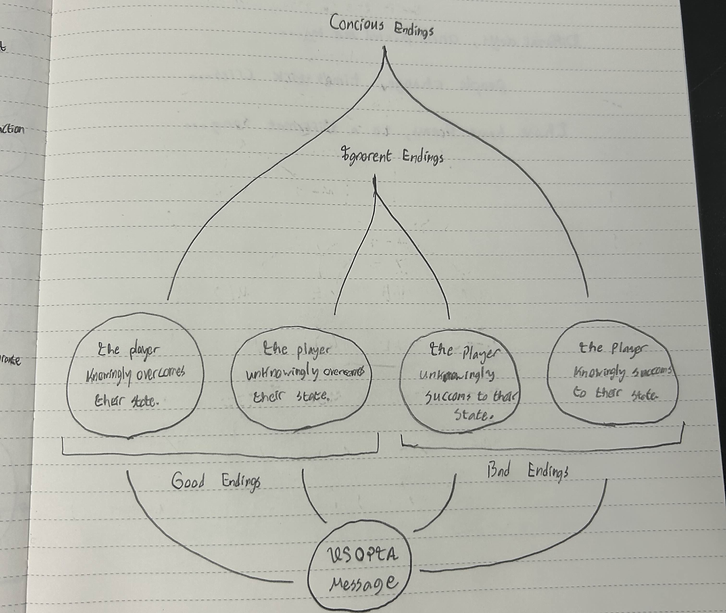 Concious Endings
Ignorent Endings
the player
knowingly overcomes
their state.
the player
unknowingly overcomes
their state.
the Player
unknowingly
succoms to their
state.
the Player
knowingly succoms
to their state.
Good Endings
Bad Endings
Message